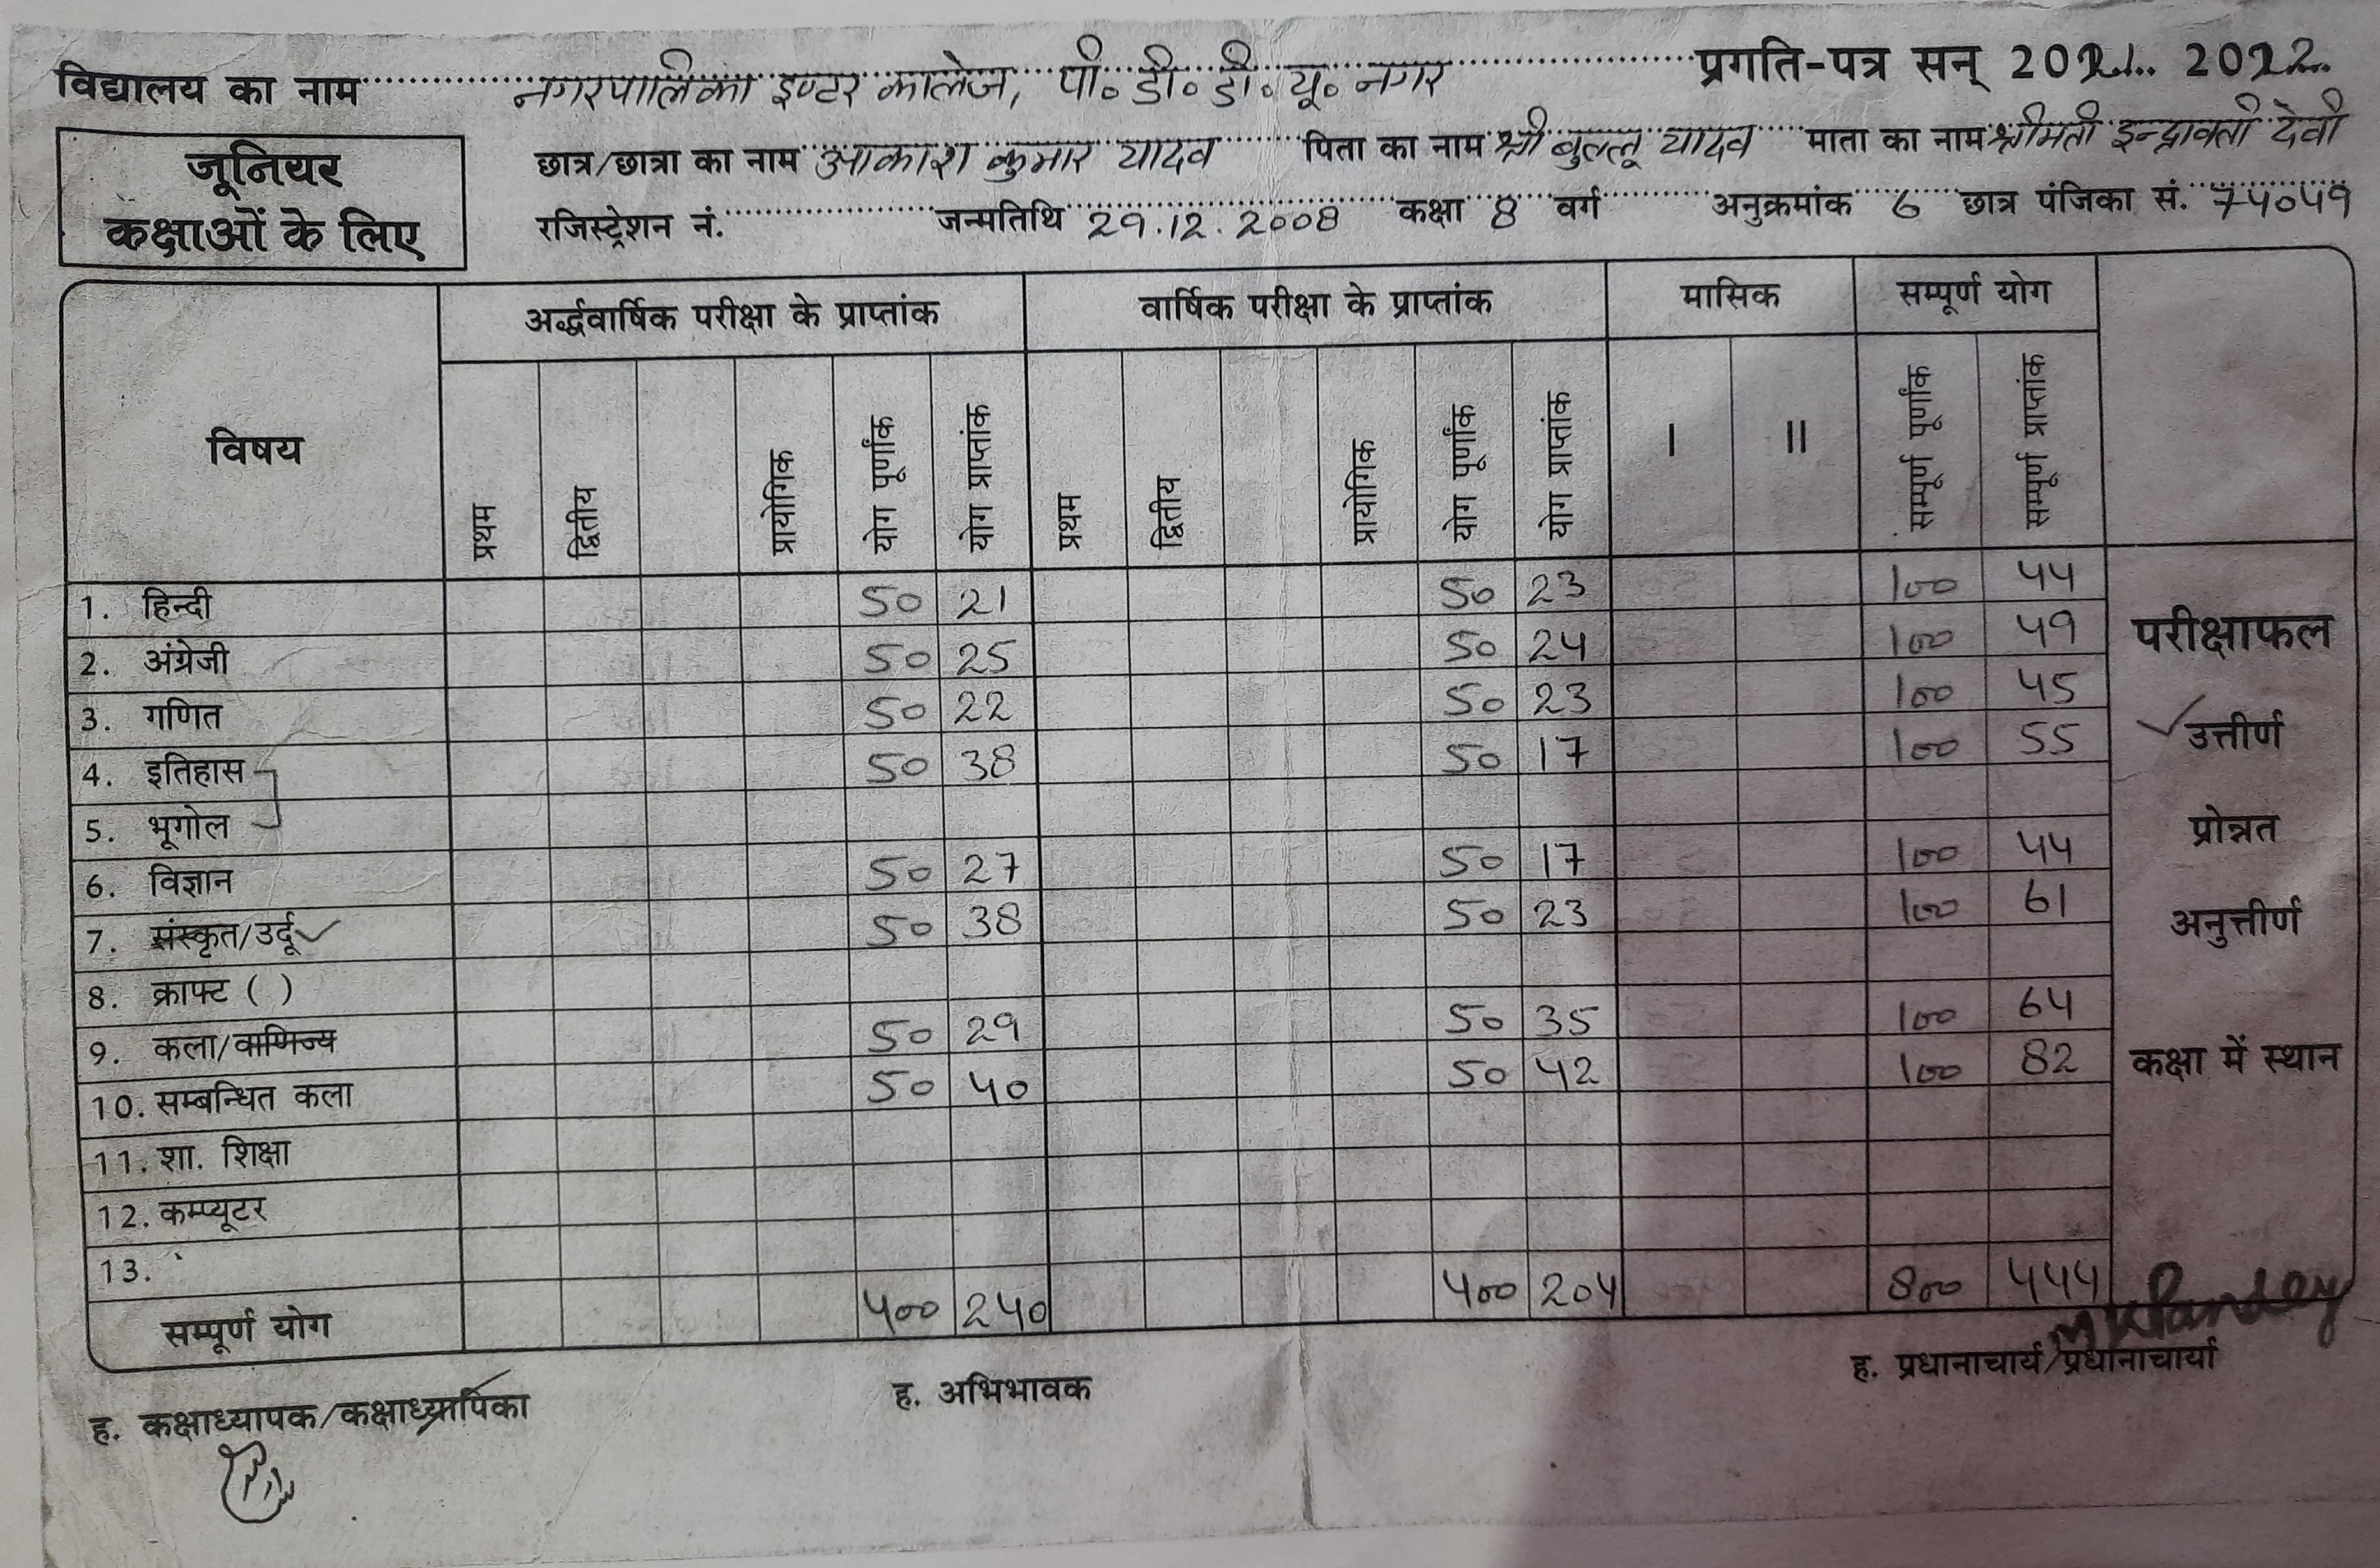 विद्यालय का नाम नगरपालिका इण्टर कालेज, पी॰ डी॰ डी॰ यू॰ नगर प्रगति-पत्र सन् 2021 2022
जूनियर कक्षाओं के लिए
छात्र/छात्रा का नाम आकाश कुमार यादव पिता का नाम श्री बुल्लू यादव माता का नाम श्रीमती इन्द्रावती देवी
रजिस्ट्रेशन नं. जन्मतिथि 29.12.2008 कक्षा 8 वर्ग अनुक्रमांक 6 छात्र पंजिका सं. 74049
विषय अर्द्धवार्षिक परीक्षा के प्राप्तांक वार्षिक परीक्षा के प्राप्तांक मासिक सम्पूर्ण योग
प्रथम द्वितीय प्रायोगिक योग पूर्णांक योग प्राप्तांक प्रथम द्वितीय प्रायोगिक योग पूर्णांक योग प्राप्तांक I II सम्पूर्ण पूर्णांक सम्पूर्ण प्राप्तांक
1. हिन्दी 50 21 50 23 100 44
2. अंग्रेजी 50 25 50 24 100 49
3. गणित 50 22 50 23 100 45
4. इतिहास 50 38 50 17 100 55
5. भूगोल
6. विज्ञान 50 27 50 17 100 44
7. संस्कृत/उर्दू 50 38 50 23 100 61
8. क्राफ्ट ( )
9. कला/वाणिज्य 50 29 50 35 100 64
10. सम्बन्धित कला 50 40 50 42 100 82
11. शा. शिक्षा
12. कम्प्यूटर
13.
सम्पूर्ण योग 400 240 400 204 800 444
परीक्षाफल
उत्तीर्ण
प्रोन्नत
अनुत्तीर्ण
कक्षा में स्थान
ह. कक्षाध्यापक/कक्षाध्यापिका ह. अभिभावक ह. प्रधानाचार्य/प्रधानाचार्या